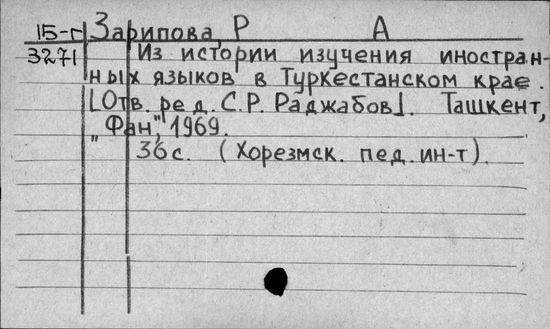 15-г Зарипова, Р А
3271 Из истории изучения иностран-
ных языков в Туркестанском крае.
[Отв. ред. С.Р. Раджабов]. Ташкент,
„Фан", 1969.
36 с. (Хорезмск. пед. ин-т).